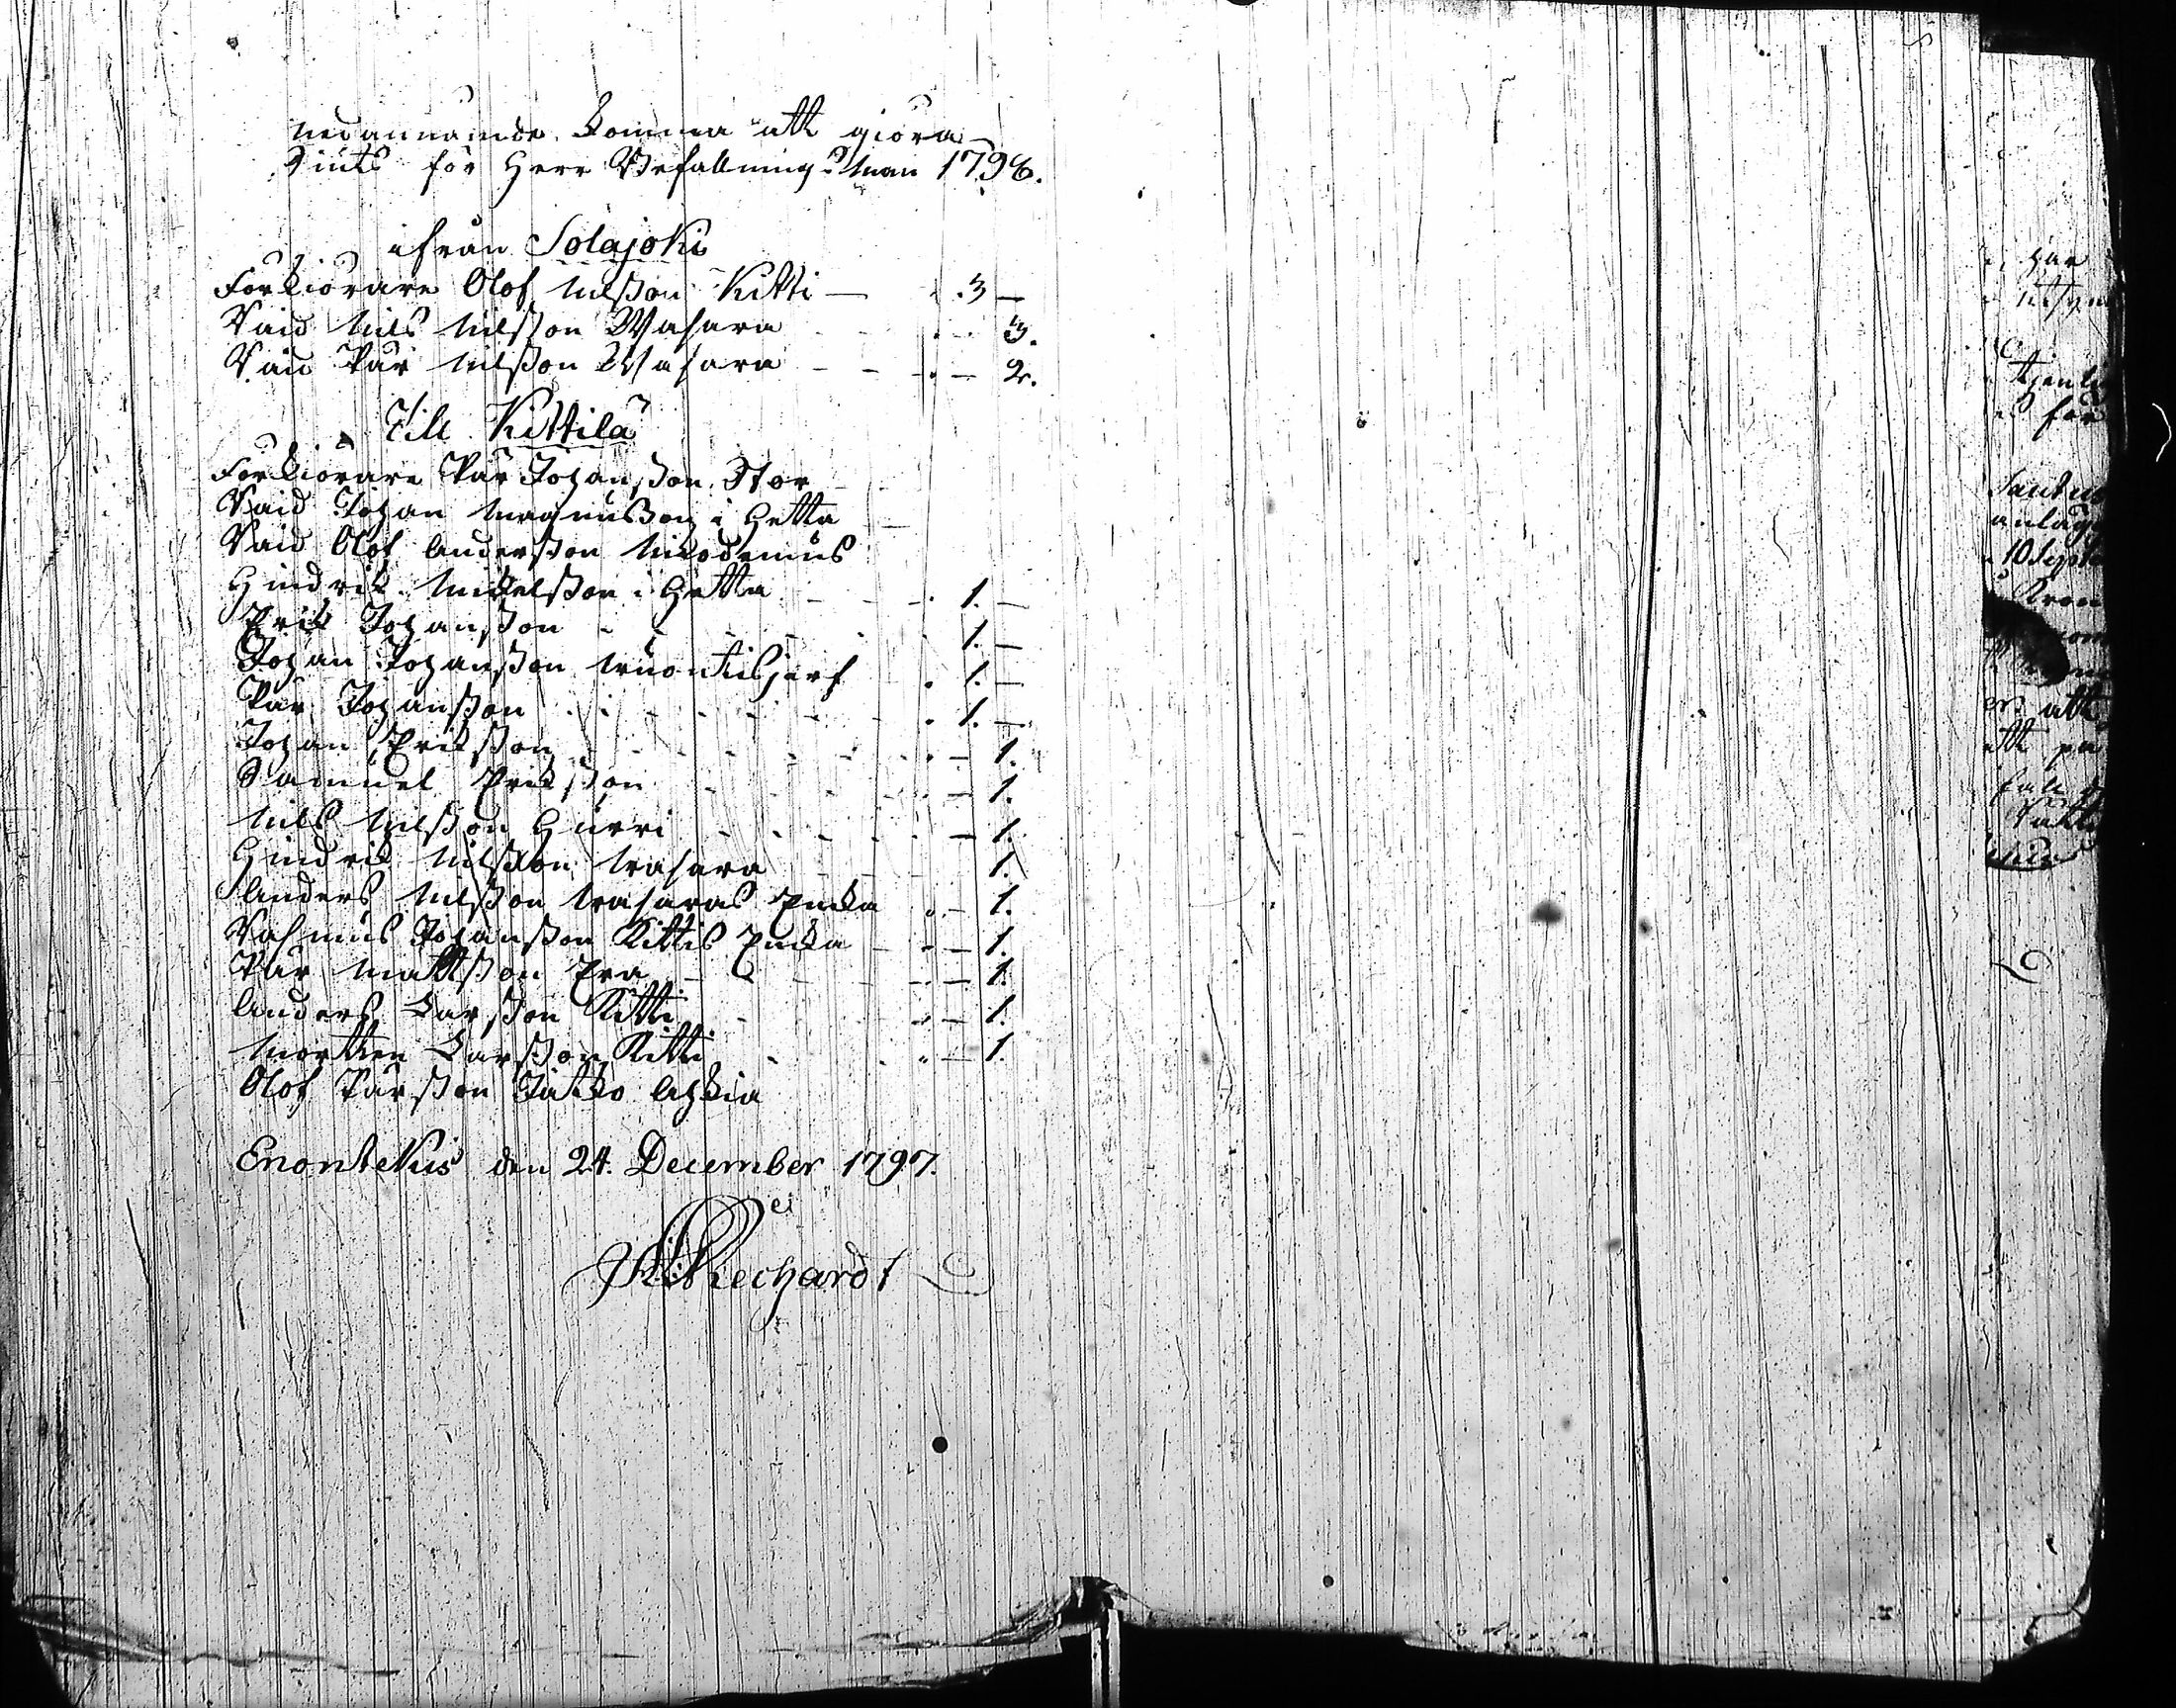 Nedannämde komma att giöra
Siuts för Herr Befallnings Man 1798.
ifrån Solajoki
Förkiörare Olof Nilsson Kitti — . 3 —
Raid Nils Nilsson Wasara . — 3.
Raid Pär Nilsson Wasara — — . — 2.
Till Kittilä
Förkiörare Pär Johansson Stor
Raid Johan Magnusson i Hetta
Raid Olof Andersson Nicodemus
Hindrik Mickelsson i Hetta — . 1. —
Erik Johansson . 1. —
Johan Johansson Wuontisjerf . 1. —
Pär Johansson . 1. —
Johan Eriksson . — 1.
Samuel Eriksson . — 1.
Nils Nilsson Hurri . — 1.
Hindrik Nilsson Wasara 1.
Anders Nilsson Wasaras Encka . — 1.
Rasmus Johansson Kittis Encka . — 1.
Pär Mattsson Era . — 1.
Anders Larsson Kitti . — 1.
Morthen Larsson Kitti . — 1.
Olof Pärsson Jatko
Enontekis den 24. December 1797.
Rechardt
har
10 Septe
Kron
er att
att på